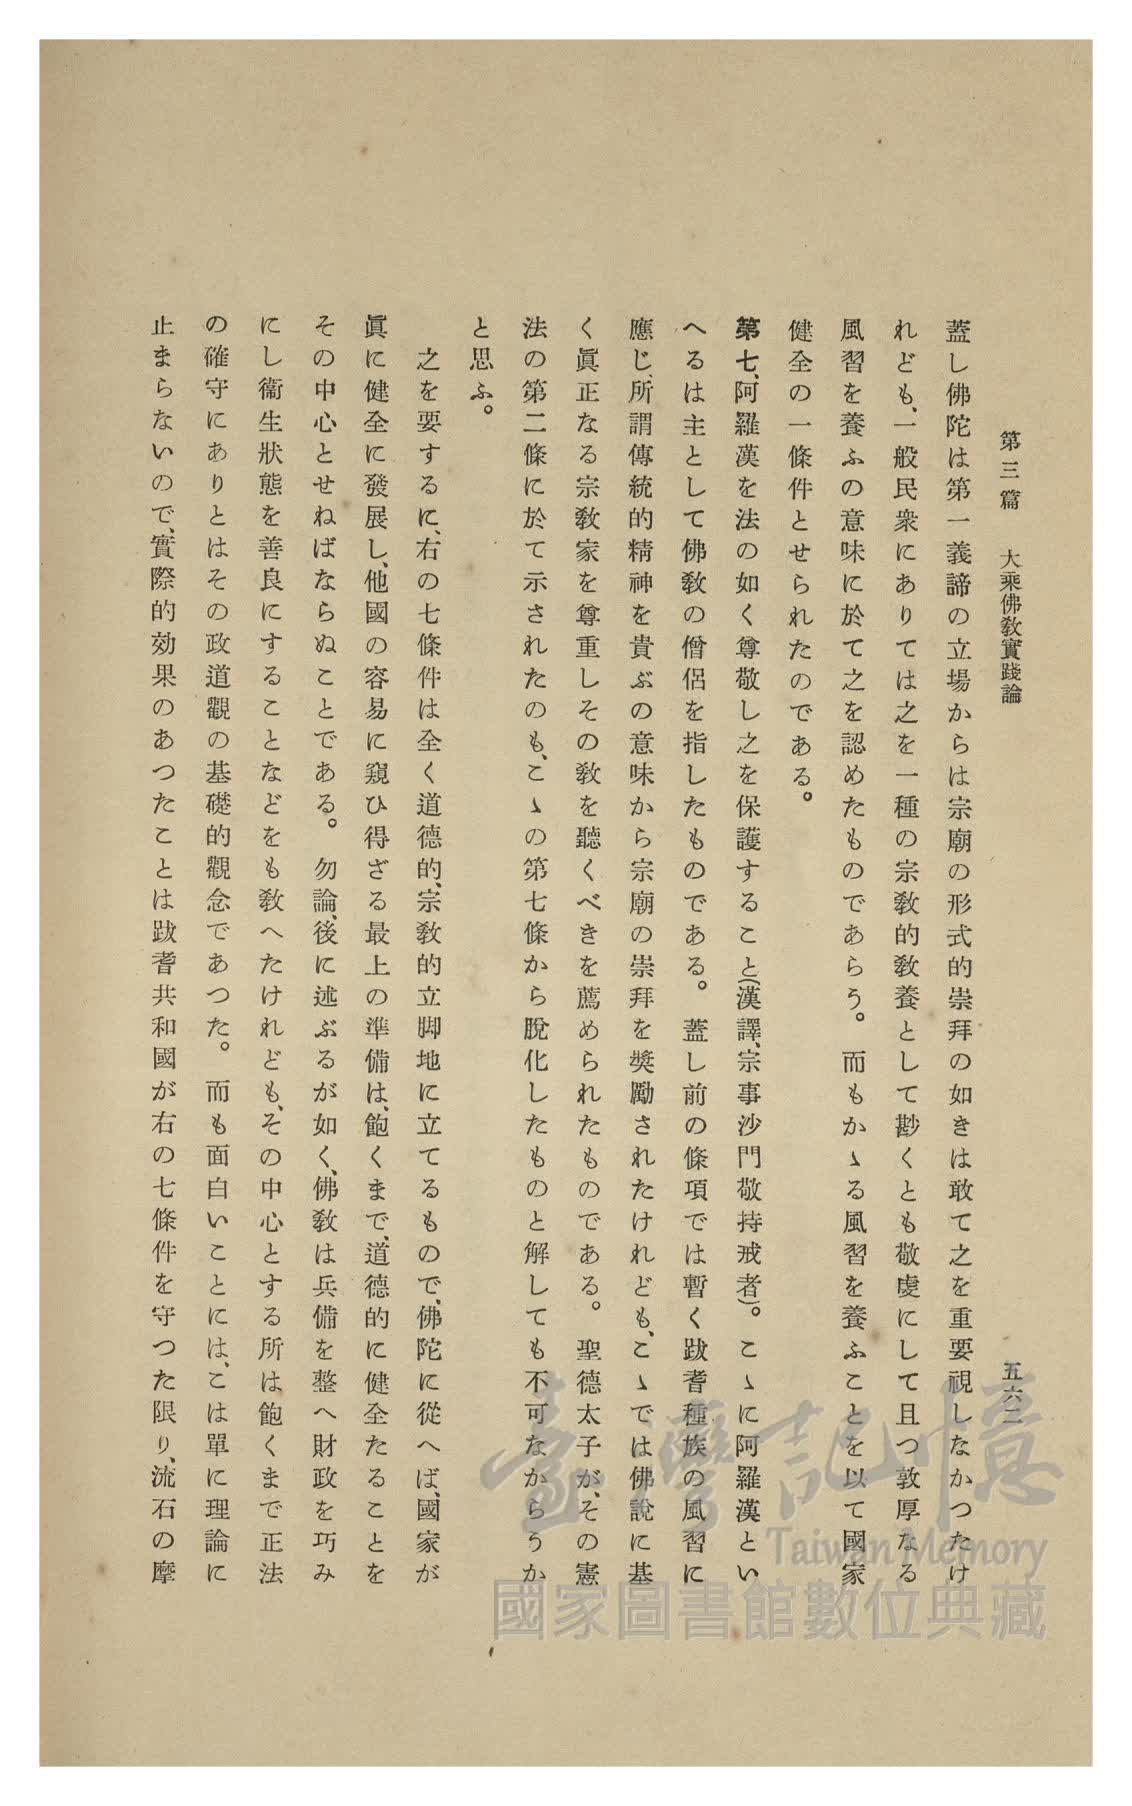 第三篇　大乘佛敎實踐論
五六二
蓋し佛陀は第一義諦の立場からは宗廟の形式的崇拜の如きは敢て之を重要視しなかつたけ
れども、一般民衆にありては之を一種の宗敎的敎養として尠くとも敬虔にして且つ敦厚なる
風習を養ふの意味に於て之を認めたものであらう。而もかゝる風習を養ふことを以て國家
健全の一條件とせられたのである。
第七、阿羅漢を法の如く尊敬し之を保護すること(漢譯、宗事沙門敬持戒者)。こゝに阿羅漢とい
へるは主として佛敎の僧侶を指したものである。蓋し前の條項では暫く跋耆種族の風習に
應じ、所謂傳統的精神を貴ぶの意味から宗廟の崇拜を奬勵されたけれども、こゝでは佛說に基
く眞正なる宗敎家を尊重しその敎を聽くべきを薦められたものである。聖德太子が、その憲
法の第二條に於て示されたのも、こゝの第七條から脫化したものと解しても不可なからうか
と思ふ。
之を要するに、右の七條件は全く道德的、宗敎的立脚地に立てるもので、佛陀に從へば、國家が
眞に健全に發展し、他國の容易に窺ひ得ざる最上の準備は、飽くまで、道德的に健全たることを
その中心とせねばならぬことである。勿論、後に述ぶるが如く、佛敎は兵備を整へ財政を巧み
にし衞生狀態を善良にすることなどをも敎へたけれども、その中心とする所は飽くまで正法
の確守にありとはその政道觀の基礎的觀念であつた。而も面白いことには、こは單に理論に
止まらないので、實際的効果のあつたことは跋耆共和國が右の七條件を守つた限り、流石の摩
臺灣記憶
Taiwan Memory
國家圖書館數位典藏